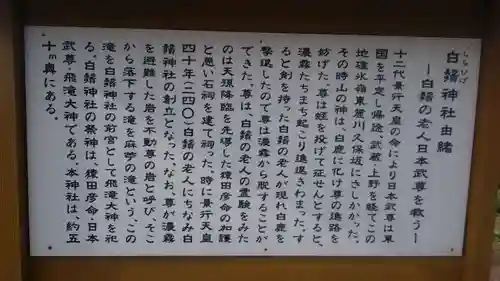 しらひげ
白髯神社由緒
―白髯の老人日本武尊を救う―
十二代景行天皇の命により日本武尊は東
国を平定し帰途、武蔵、上野を経てこの
地碓氷嶺東麓川久保坂にさしかかった。
その時山の神は、白鹿に化け尊の進路を
妨げた。尊は蛭を投げて征せんとすると、
濃霧たちまち起こり進退きわまった。す
ると剣を持った白髯の老人が現れ白鹿を
撃退したので尊は濃霧から脱することが
できた。尊は、白髯の老人の霊験をみた
のは天孫降臨を先導した猿田彦命の加護
と思い石祠を建て祠った。時に景行天皇
四十年（一一〇）白髯の老人にちなみ白
髯神社の創立となった。なお、尊が濃霧
を避難した岩を不動尊の岩と呼び、そこ
から落下する滝を麻苧の滝という。この
滝を白髯神社の前宮として飛滝大神を祀
る。白髯神社の祭神は、猿田彦命・日本
武尊・飛滝大神である。本神社は、約五
十m奥にある。